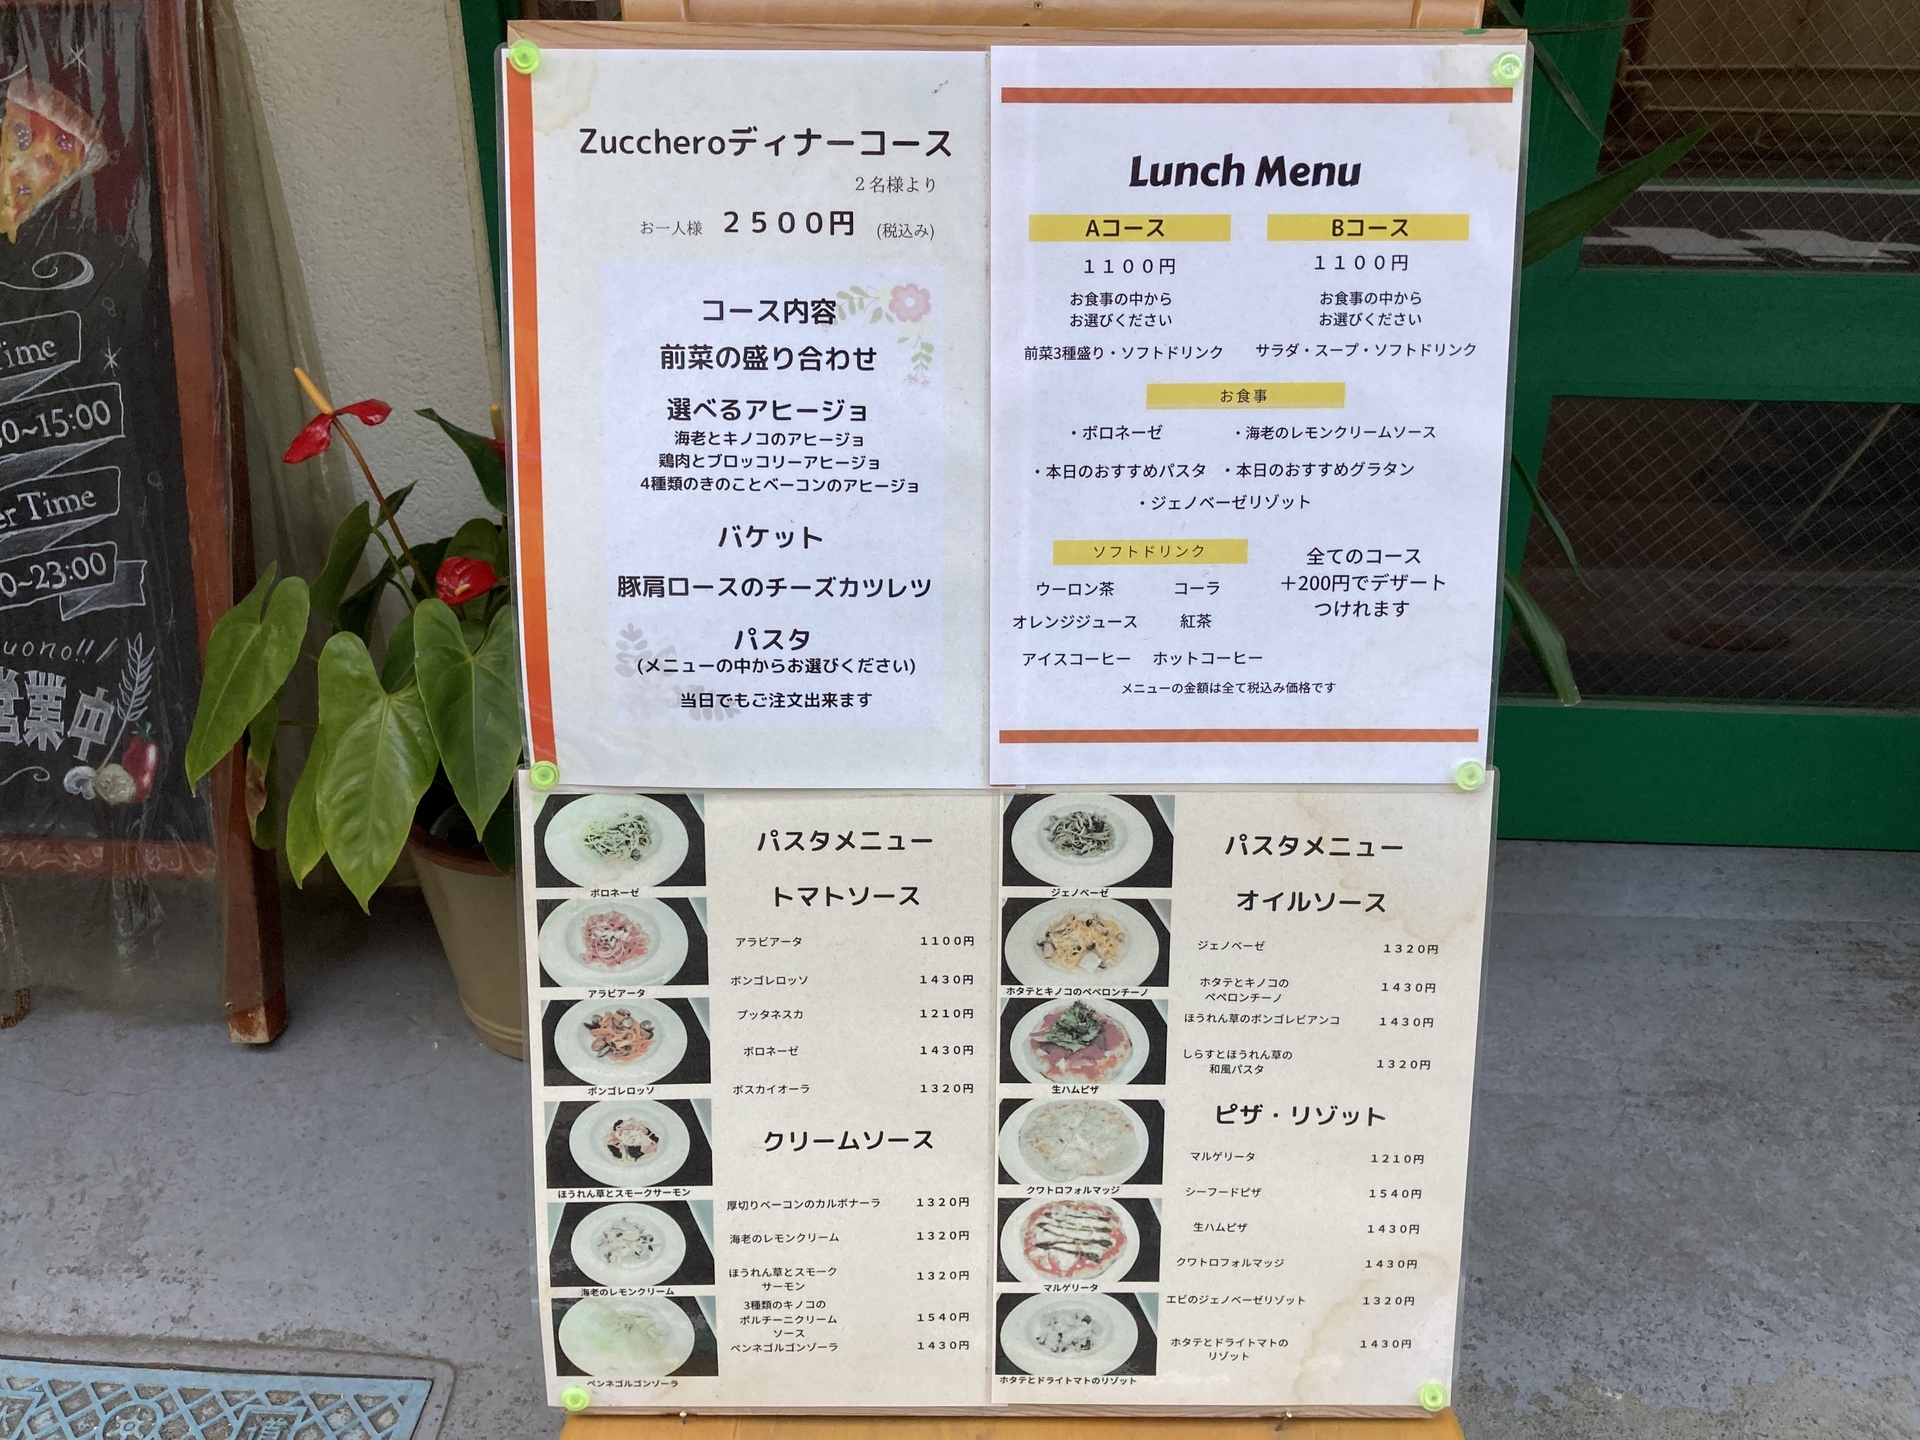 Time
0~15:00
er Time
0~23:00
uono!!/
営業中
Zuccheroディナーコース
2名様より
お一人様 2500円 (税込み)
コース内容
前菜の盛り合わせ
選べるアヒージョ
海老とキノコのアヒージョ
鶏肉とブロッコリーアヒージョ
4種類のきのことベーコンのアヒージョ
バケット
豚肩ロースのチーズカツレツ
パスタ
(メニューの中からお選びください)
当日でもご注文出来ます
Lunch Menu
Aコース Bコース
1100円 1100円
お食事の中から お食事の中から
お選びください お選びください
前菜3種盛り・ソフトドリンク サラダ・スープ・ソフトドリンク
お食事
・ボロネーゼ ・海老のレモンクリームソース
・本日のおすすめパスタ ・本日のおすすめグラタン
・ジェノベーゼリゾット
ソフトドリンク
ウーロン茶 コーラ
オレンジジュース 紅茶
アイスコーヒー ホットコーヒー
全てのコース
+200円でデザート
つけれます
メニューの金額は全て税込み価格です
ボロネーゼ
アラビアータ
ボンゴレロッソ
ほうれん草とスモークサーモン
海老のレモンクリーム
ペンネゴルゴンゾーラ
パスタメニュー
トマトソース
アラビアータ 1100円
ボンゴレロッソ 1430円
プッタネスカ 1210円
ボロネーゼ 1430円
ボスカイオーラ 1320円
クリームソース
厚切りベーコンのカルボナーラ 1320円
海老のレモンクリーム 1320円
ほうれん草とスモーク
サーモン 1320円
3種類のキノコの
ポルチーニクリーム 1540円
ソース
ペンネゴルゴンゾーラ 1430円
ジェノベーゼ
ホタテとキノコのペペロンチーノ
生ハムピザ
クワトロフォルマッジ
マルゲリータ
ホタテとドライトマトのリゾット
パスタメニュー
オイルソース
ジェノベーゼ 1320円
ホタテとキノコの
ペペロンチーノ 1430円
ほうれん草のボンゴレビアンコ 1430円
しらすとほうれん草の
和風パスタ 1320円
ピザ・リゾット
マルゲリータ 1210円
シーフードピザ 1540円
生ハムピザ 1430円
クワトロフォルマッジ 1430円
エビのジェノベーゼリゾット 1320円
ホタテとドライトマトの
リゾット 1430円